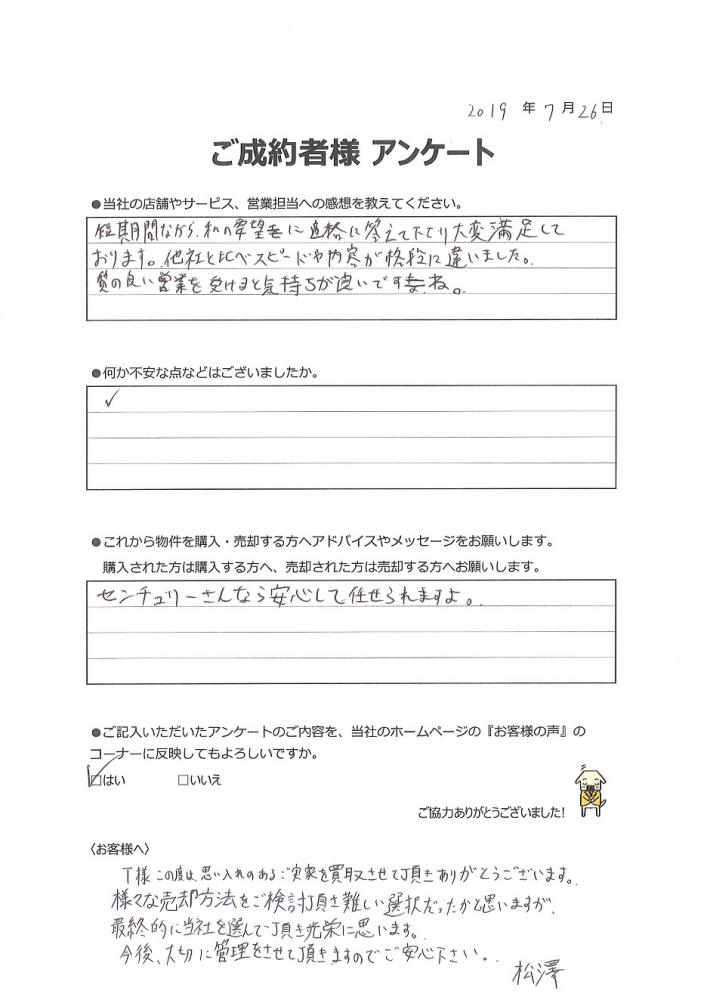 2019 年 7 月 26 日
ご成約者様 アンケート
●当社の店舗やサービス、営業担当への感想を教えてください。
短期間ながら、私の希望に適格に答えて下さり大変満足して
おります。他社と比べスピードや内容が格段に違いました。
質の良い営業を受けると気持ちが良いですね。
●何か不安な点などはございましたか。
✓
●これから物件を購入・売却する方へアドバイスやメッセージをお願いします。
購入された方は購入する方へ、売却された方は売却する方へお願いします。
センチュリーさんなら安心して任せられますよ。
●ご記入いただいたアンケートのご内容を、当社のホームページの『お客様の声』の
コーナーに反映してもよろしいですか。
☑はい □いいえ
ご協力ありがとうございました!
〈お客様へ〉
T様 この度は、思い入れのあるご実家を買取させて頂きありがとうございます。
様々な売却方法をご検討頂き難しい選択だったかと思いますが、
最終的に当社を選んで頂き光栄に思います。
今後、大切に管理をさせて頂きますのでご安心下さい。
松澤